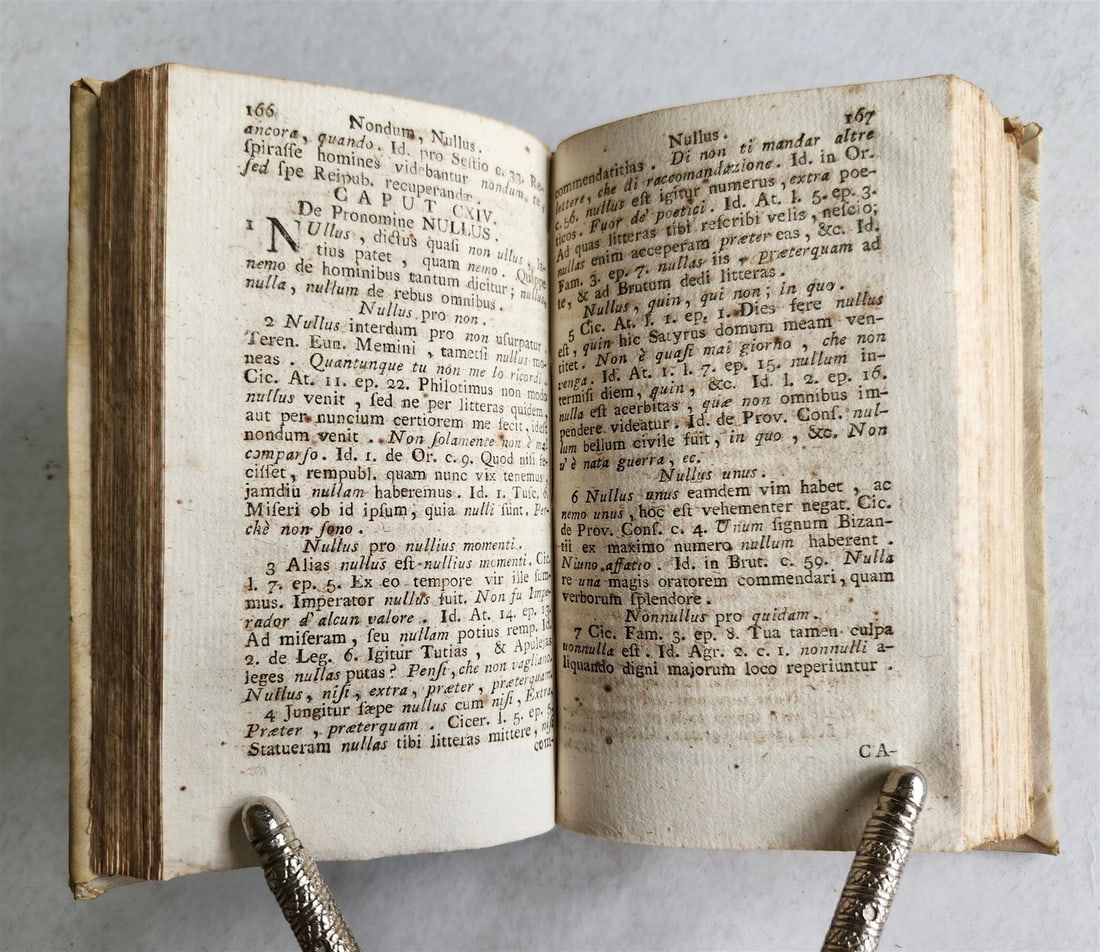 166
Nondum, Nullus.
ancora, quando. Id. pro Sestio c. 33. Re-
ſpiraſſe homines videbantur nondum, te,
ſed ſpe Reipub. recuperandæ.
CAPUT CXIV.
De Pronomine NULLUS.
1 NUllus, dictus quaſi non ullus,
tius patet, quam nemo.
nemo de hominibus tantum dicitur; nullus,
nulla, nullum de rebus omnibus.
Nullus pro non.
2 Nullus interdum pro non uſurpatur.
Teren. Eun. Memini, tametſi nullus mo-
neas. Quantunque tu non me lo ricordi.
Cic. At. 11. ep. 22. Philotimus non modo
nullus venit, ſed ne per litteras quidem,
aut per nuncium certiorem me fecit, ideſt
nondum venit. Non ſolamente non è mai
comparſo. Id. 1. de Or. c. 9. Quod niſi fe-
ciſſet, rempubl. quam nunc vix tenemus,
jamdiu nullam haberemus. Id. 1. Tuſc. 6.
Miſeri ob id ipſum, quia nulli ſunt. Per-
chè non ſono.
Nullus pro nullius momenti.
3 Alias nullus eſt nullius momenti. Cic.
l. 7. ep. 5. Ex eo tempore vir ille ſum-
mus. Imperator nullus fuit. Non fu Impe-
rador d'alcun valore. Id. At. 14. ep. 13.
Ad miſeram, ſeu nullam potius remp. Id.
2. de Leg. 6. Igitur Tutias, & Apulejas
leges nullas putas? Penſi, che non vagliano.
Nullus, niſi, extra, præter, præterquam.
4 Jungitur ſæpe nullus cum niſi, Extra,
Præter, præterquam. Cicer. l. 5. ep. 5.
Statueram nullas tibi litteras mittere, niſi
com-
167
Nullus.
commendatitias. Di non ti mandar altre
lettere, che di raccomandazione. Id. in Or.
c. 56. nullus eſt igitur numerus, extra poe-
ticos. Fuor de' poetici. Id. At. l. 5. ep. 3.
Ad quas litteras tibi reſcribi velis, neſcio;
nullas enim acceperam præter eas, &c. Id.
Fam. 3. ep. 7. nullas iis, præterquam ad
te, & ad Brutum dedi litteras.
Nullus, quin, qui non; in quo.
5 Cic. At. l. 1. ep. 1. Dies fere nullus
eſt, quin hic Satyrus domum meam ven-
titet. Non è quaſi mai giorno, che non
venga. Id. At. 1. l. 7. ep. 15. nullum in-
termiſi diem, quin, &c. Id. l. 2. ep. 16.
nulla eſt acerbitas, quæ non omnibus im-
pendere videatur. Id. de Prov. Conſ. nul-
lum bellum civile fuit, in quo, &c. Non
v'è nata guerra, ec.
Nullus unus.
6 Nullus unus eamdem vim habet, ac
nemo unus, hoc eſt vehementer negat. Cic.
de Prov. Conſ. c. 4. Unum ſignum Bizan-
tii ex maximo numero nullum haberent.
Niuno affatto. Id. in Brut. c. 59. Nulla
re una magis oratorem commendari, quam
verborum ſplendore.
Nonnullus pro quidam.
7 Cic. Fam. 3. ep. 8. Tua tamen culpa
nonnulla eſt. Id. Agr. 2. c. 1. nonnulli a-
liquando digni majorum loco reperiuntur.
CA-